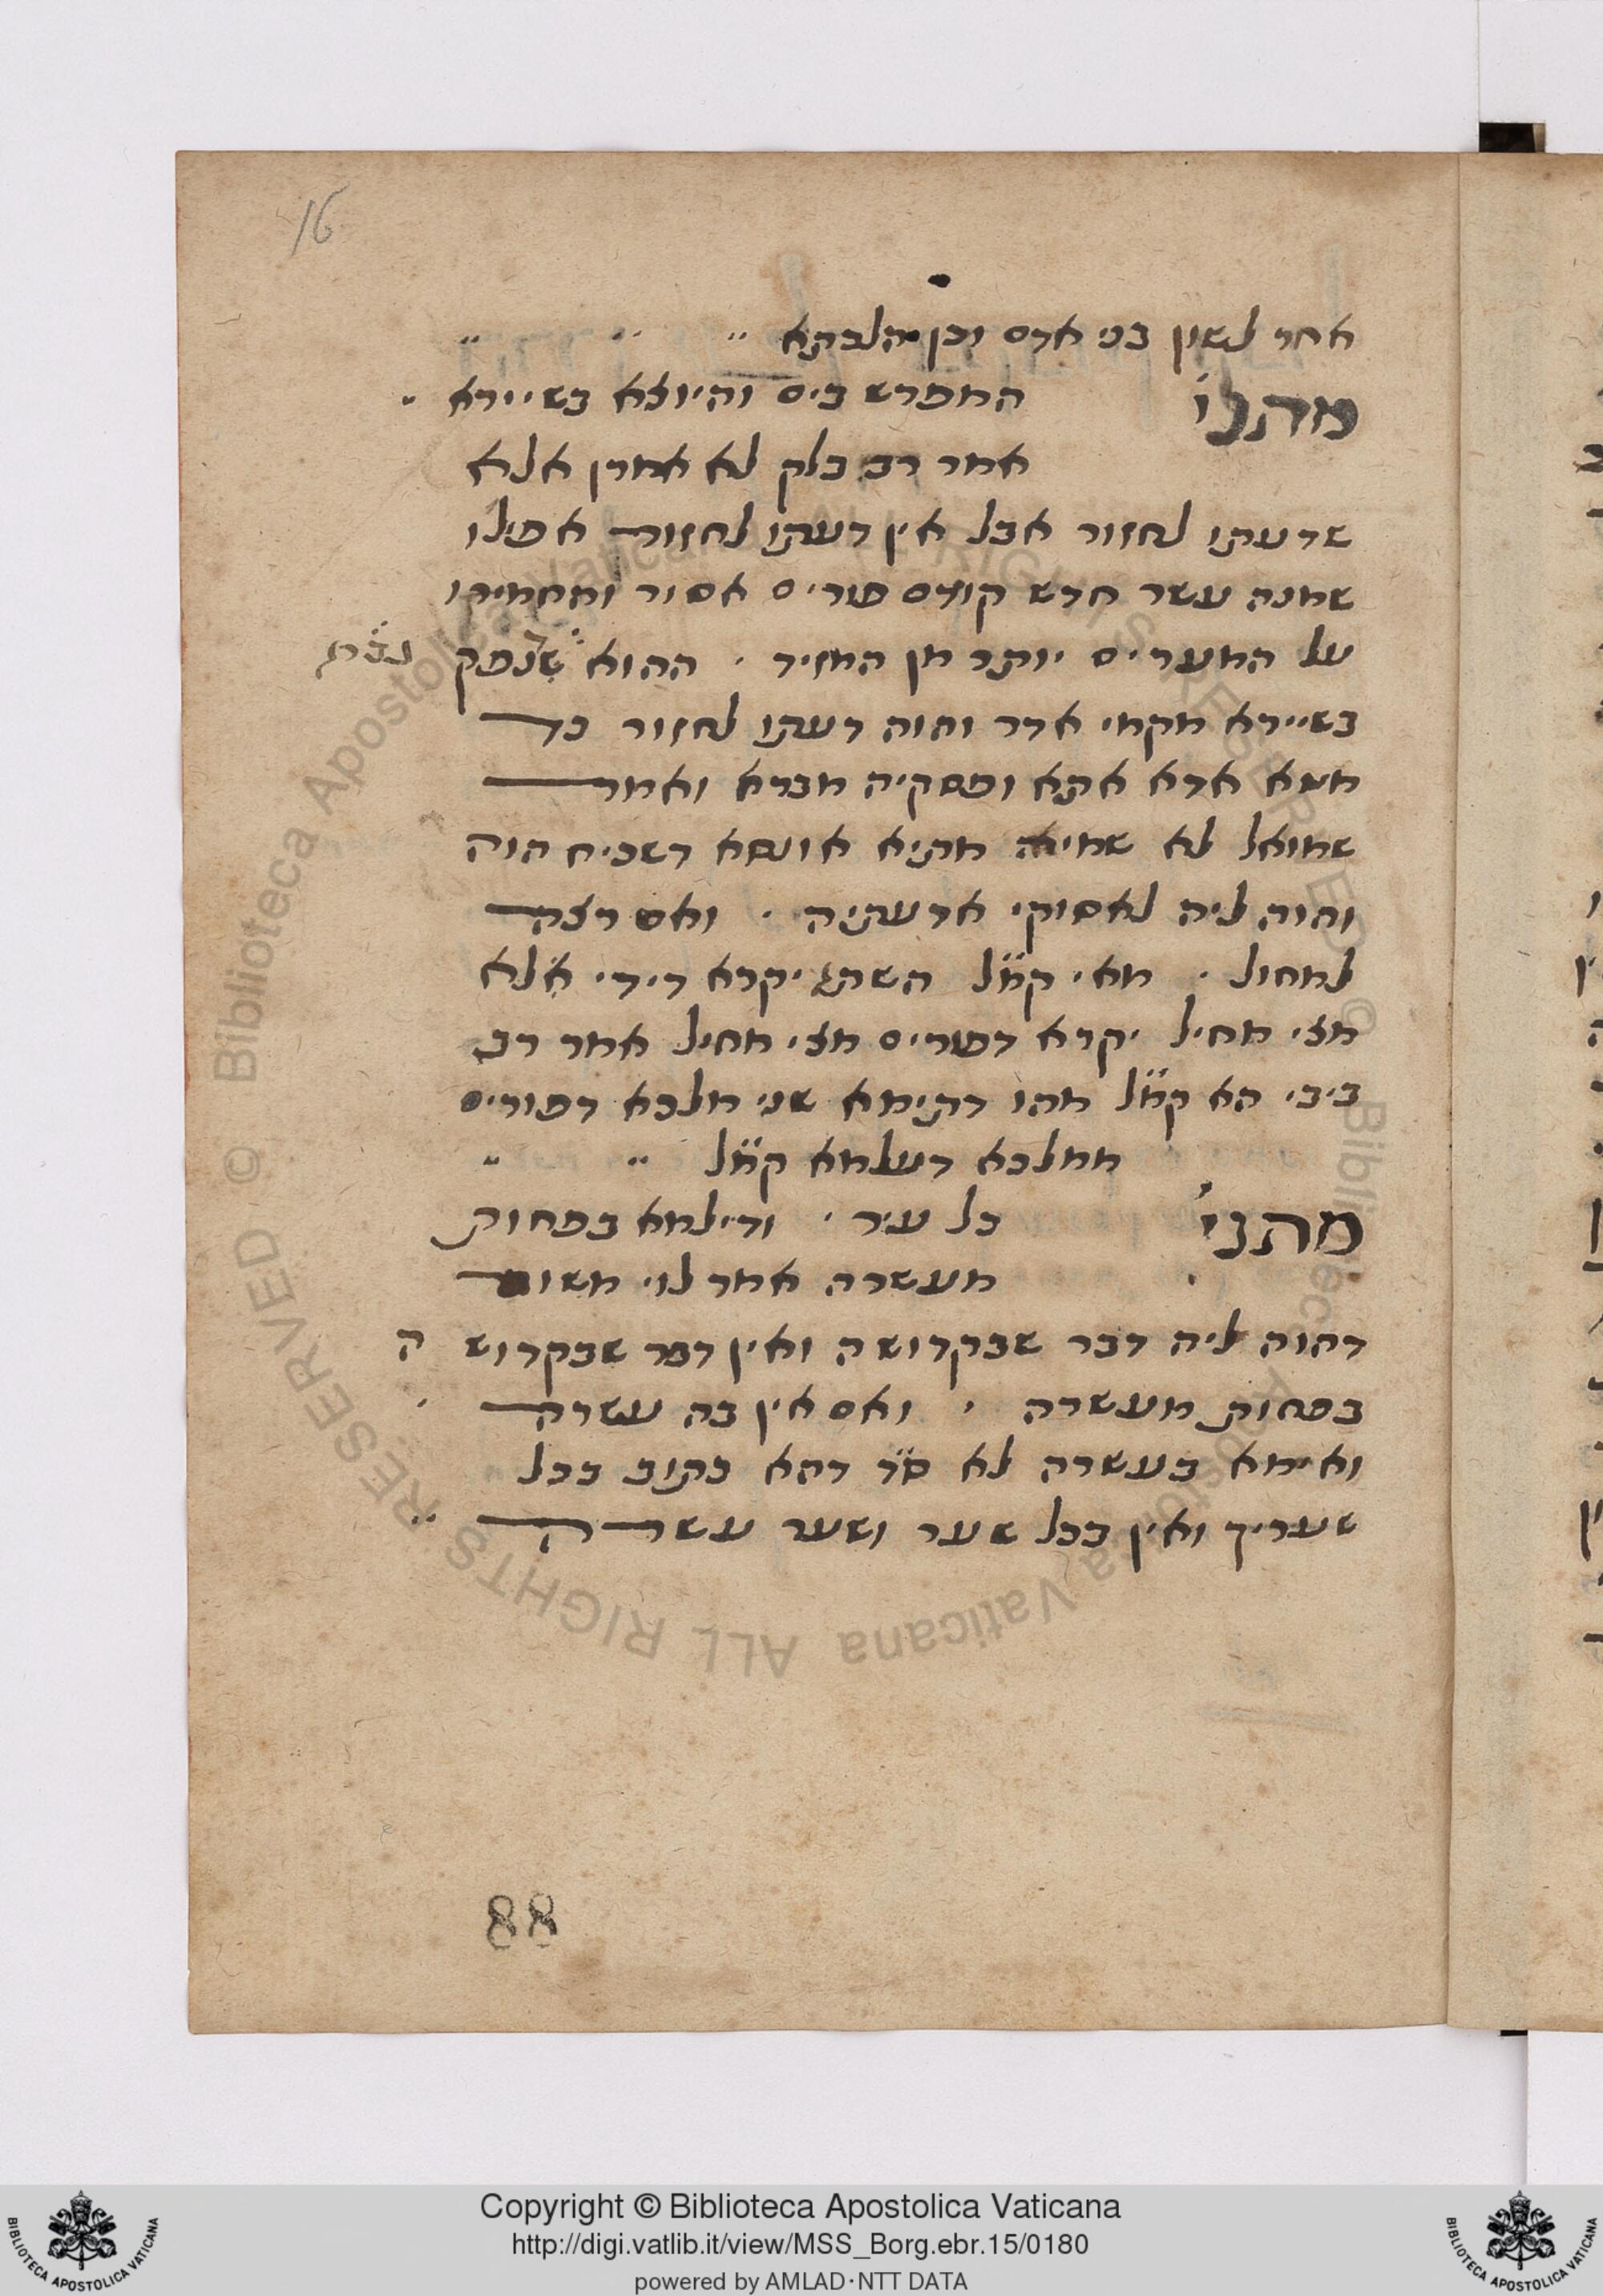 16
אחר לשון בני אדם וכן הלכתא
מתני' המפרש בים והיוצא בשיירא
אמר רב בלק לא אמרן אלא
שדעתו לחזור אבל אין דעתו לחזור אפילו
שמנה עשר חדש קודם פורים אסור ומחמירו
על המערים יותר מן המזיד ההוא שנפק
בשיירא מקמי אדר והוה דעתו לחזור כד
מטא אדא אתא ופסקיה מברא ואמר
שמואל לא שמיה מתיא אונסא דשכיח הוה
והוה ליה לאסוקי אדעתיה ואם רצה
למחול מאי קמ״ל השתא יקרא דידי אלא
מצי מחיל יקרא דפורים מצי מחיל אמר רב
ביבי הא קמ״ל מהו דתימא שני מלכא דפורים
ממלכא דעלמא קמ״ל
מתני' כל עיר ודילמא בפחות
מעשרה אמר לוי משום
דהוה ליה דבר שבקדושה ואין דבר שבקדוש ה
בפחות מעשרה ואם אין בה עשרה
ואימא בעשרה לא ס״ד דהא כתוב בכל
שעריך ואין בכל שער ושער עשרה
88
Biblioteca Apostolica Vaticana ALL RIGHTS RESERVED ©
Copyright © Biblioteca Apostolica Vaticana
http://digi.vatlib.it/view/MSS_Borg.ebr.15/0180
powered by AMLAD·NTT DATA
BIBLIOTECA APOSTOLICA VATICANA
BIBLIOTECA APOSTOLICA VATICANA